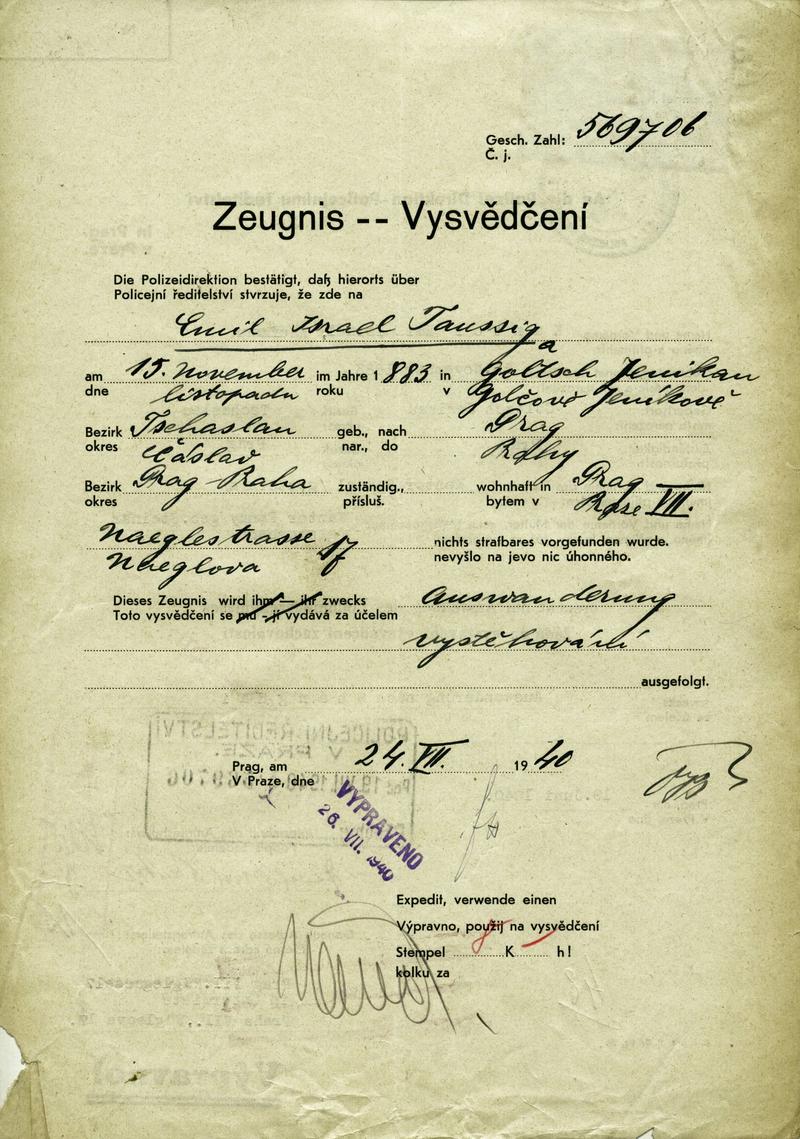 Gesch. Zahl: 569706
Č. j.
Zeugnis -- Vysvědčení
Die Polizeidirektion bestätigt, daß hierorts über
Policejní ředitelství stvrzuje, že zde na
Emil Israel Taussig
a
am 15. November im Jahre 1 883 in Goltsch Jenikau
dne listopadu roku v Golčově Jeníkově
Bezirk Tschaslau geb., nach Prag
okres Čáslav nar., do Prahy
Bezirk Prag Praha zuständig., wohnhaft in Prag
okres přísluš. bytem v Praze VII.
Naeglestrasse 17 nichts strafbares vorgefunden wurde.
Naeglova nevyšlo na jevo nic úhonného.
Dieses Zeugnis wird ihm — ihr zwecks Auswanderung
Toto vysvědčení se mu - jí vydává za účelem
vystěhování
ausgefolgt.
Prag, am 24. VII. 19 40
V Praze, dne
VYPRAVENO
26. VII. 1940
Expedit, verwende einen
Výpravno, použij na vysvědčení
Stempel K h!
kolku za